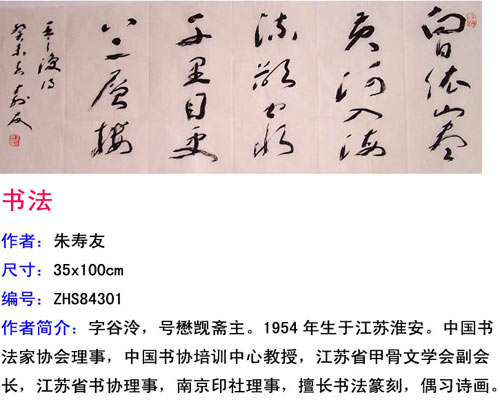 白日依山盡
黄河入海
流欲窮
千里目更
上一層樓
王之渙诗
癸未 寿友
书法
作者：朱寿友
尺寸：35x100cm
编号：ZHS84301
作者简介：字谷泠，号懋觊斋主。1954年生于江苏淮安。中国书
法家协会理事，中国书协培训中心教授，江苏省甲骨文学会副会
长，江苏省书协理事，南京印社理事，擅长书法篆刻，偶习诗画。